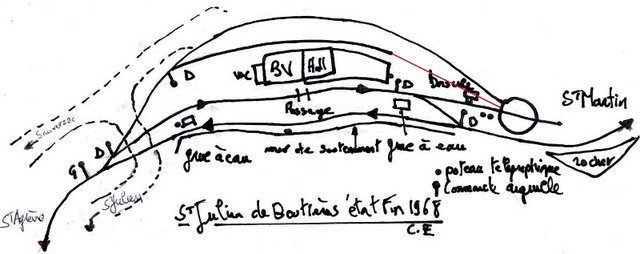 D
WC
BV
Hall
D
Bascule
St Martin
Sauverzac
Passage
D
D
G
grue à eau
mur de soutenement
grue à eau
rocher
poteau telegraphique
Commande aiguille
St Agrève
St Julien
St Julien de Boutières état Fin 1968
C.E